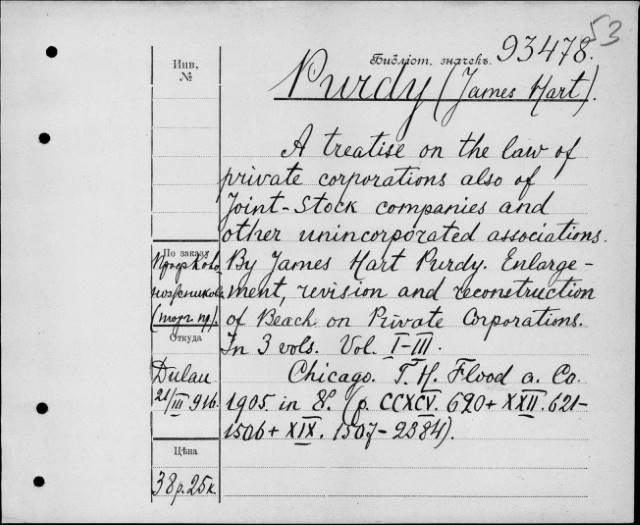 53
Библіот. значекъ 93478.
Инв.
№
Purdy (James Hart).
A treatise on the law of
private corporations also of
Joint-Stock companies and
other unincorporated associations.
По заказу
By James Hart Purdy. Enlarge-
ment, revision and reconstruction
(торг. пр).
of Beach on Private Corporations.
Откуда
In 3 vols. Vol. I-III.
Dulau
Chicago. T. H. Flood a. Co.
21/III 916.
1905 in 8º. (p. CCXCV. 620 + XXII. 621-
1506 + XIX. 1507-2384).
Цѣна
38 р. 25 к.